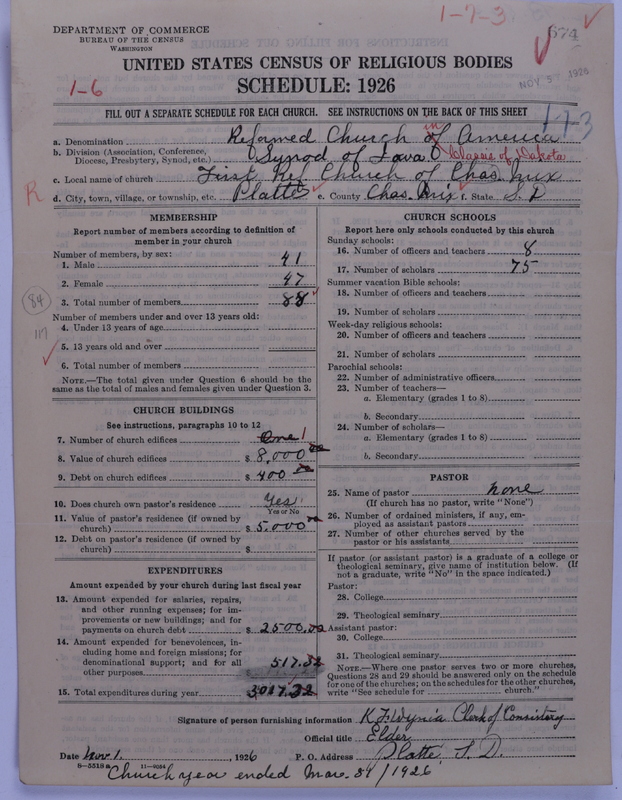 1-7-3
DEPARTMENT OF COMMERCE
BUREAU OF THE CENSUS
WASHINGTON
674
UNITED STATES CENSUS OF RELIGIOUS BODIES
NOV 5 1926
1-6
SCHEDULE: 1926
FILL OUT A SEPARATE SCHEDULE FOR EACH CHURCH. SEE INSTRUCTIONS ON THE BACK OF THIS SHEET
1-7-3
a. Denomination Reformed Church in America
b. Division (Association, Conference, Diocese, Presbytery, Synod, etc.) Synod of Iowa Classis of Dakota
c. Local name of church First Ref Church of Chas. Mix
R
d. City, town, village, or township, etc. Platte e. County Chas. Mix f. State S. D
MEMBERSHIP
Report number of members according to definition of
member in your church
Number of members, by sex:
1. Male 41
2. Female 47
3. Total number of members 88
84
Number of members under and over 13 years old:
4. Under 13 years of age
117
5. 13 years old and over
6. Total number of members
NOTE.—The total given under Question 6 should be
same as the total of males and females given under Question 3.
CHURCH BUILDINGS
See instructions, paragraphs 10 to 12
7. Number of church edifices One 1
8. Value of church edifices $ 8,000 00
9. Debt on church edifices $ 400
10. Does church own pastor's residence Yes
Yes or No
11. Value of pastor's residence (if owned by
church) $ 5,000
12. Debt on pastor's residence (if owned by
church) $
EXPENDITURES
Amount expended by your church during last fiscal year
13. Amount expended for salaries, repairs,
and other running expenses; for im-
provements or new buildings; and for
payments on church debt $ 2500.00
14. Amount expended for benevolences, in-
cluding home and foreign missions; for
denominational support; and for all
other purposes 517.32
15. Total expenditures during year 3017.32
CHURCH SCHOOLS
Report here only schools conducted by this church
Sunday schools:
16. Number of officers and teachers 8
17. Number of scholars 75
Summer vacation Bible schools:
18. Number of officers and teachers
19. Number of scholars
Week-day religious schools:
20. Number of officers and teachers
21. Number of scholars
Parochial schools:
22. Number of administrative officers
23. Number of teachers—
a. Elementary (grades 1 to 8)
b. Secondary
24. Number of scholars—
a. Elementary (grades 1 to 8)
b. Secondary
PASTOR
25. Name of pastor None
(If church has no pastor, write "None")
26. Number of ordained ministers, if any, em-
ployed as assistant pastors
27. Number of other churches served by the
pastor or his assistants
If pastor (or assistant pastor) is a graduate of a college or
theological seminary, give name of institution below. (If
not a graduate, write "No" in the space indicated.)
Pastor:
28. College
29. Theological seminary
Assistant pastor:
30. College
31. Theological seminary
NOTE.—Where one pastor serves two or more churches,
Questions 28 and 29 should be answered only on the schedule
for one of the churches; on the schedules for the other churches,
write "See schedule for church."
Signature of person furnishing information K F Wynia Clerk of Consistory
Official title Elder
Date Nov 1. , 1926 P. O. Address Platte, S. D.
8-5518a 11-9084
Church year ended Mar. 31/1926